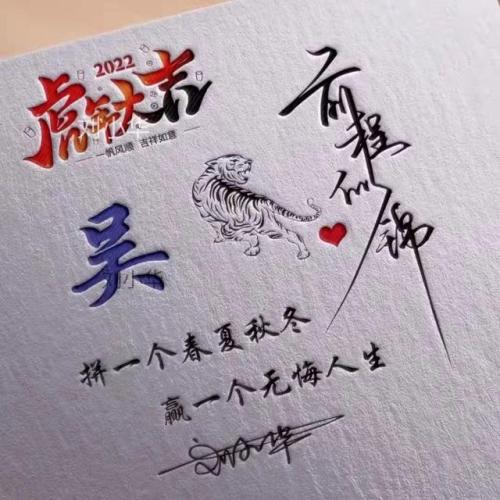 2022
虎年大吉
一帆风顺 吉祥如意
前程似锦
吴
刘小华
拼一个春夏秋冬
赢一个无悔人生
刘小华